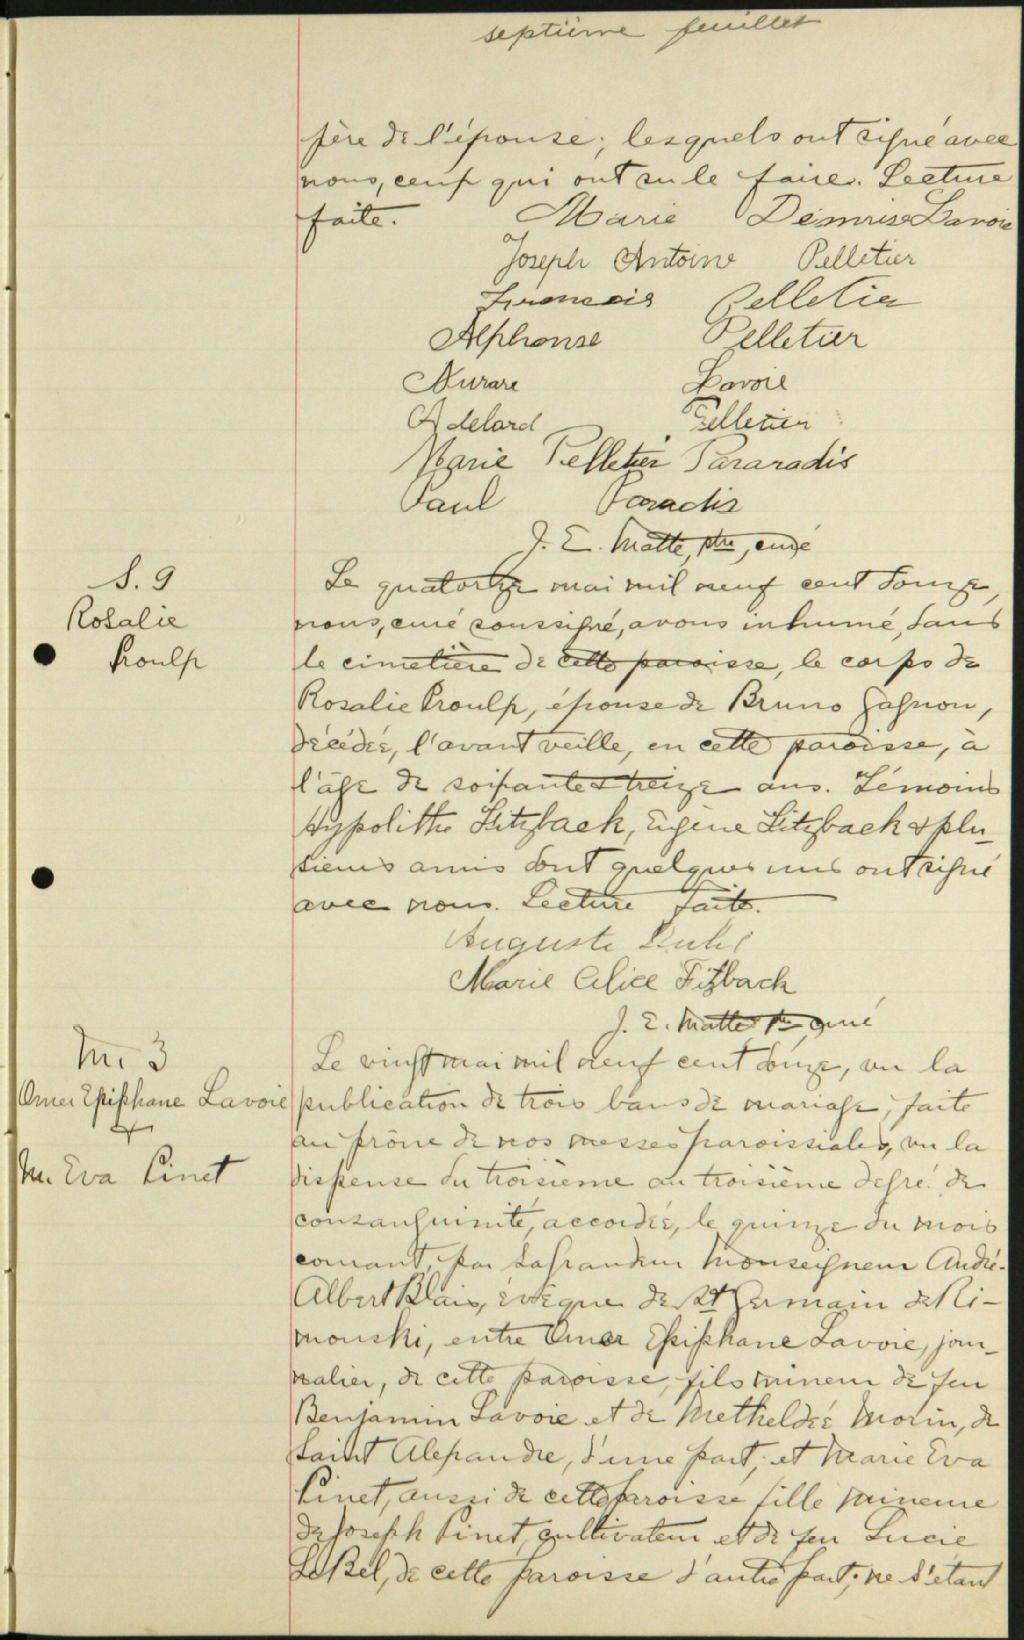 septième feuillet
père de l'épouse; lesquels ont signé avec
nous, ceux qui ont su le faire. Lecture
faite. Marie Démerise Lavoie
Joseph Antoine Pelletier
Francois Pelletier
Alphonse Pelletier
Aurare Lavoie
Adelard Pelletier
Marie Pelletier Pararadis
Paul Paradis
J. E. Matte, ptre, curé
S. 9
Rosalie
Proulx
Le quatorze mai mil neuf cent douze,
nous, curé soussigné, avons inhumé, dans
le cimetière de cette paroisse, le corps de
Rosalie Proulx, épouse de Bruno Gagnon,
décédée, l'avant veille, en cette paroisse, à
l'âge de soixante & treize ans. Témoins
Hypolithe Fitzback, Eugène Fitzback & plu-
sieurs amis dont quelques uns ont signé
avec nous. Lecture faite.
Auguste
Marie Alice Fitzback
J. E. Matte ptre, curé
M. 3
Omer Epiphane Lavoie
&
M. Eva Pinet
Le vingt mai mil neuf cent douze, vu la
publication de trois bans de mariage, faite
au prône de nos messes paroissiales, vu la
dispense du troisième au troisième degré de
consanguinité, accordée, le quinze du mois
courant, par Sa Grandeur Monseigneur André-
Albert Blais, évêque de St Germain de Ri-
mouski, entre Omer Epiphane Lavoie, jour-
nalier, de cette paroisse, fils mineur de feu
Benjamin Lavoie et de Metheldée Morin, de
Saint Alexandre, d'une part; et Marie Eva
Pinet, aussi de cette paroisse fille mineure
de Joseph Pinet, cultivateur et de feu Lucie
LeBel, de cette paroisse d'autre part; ne s'étant